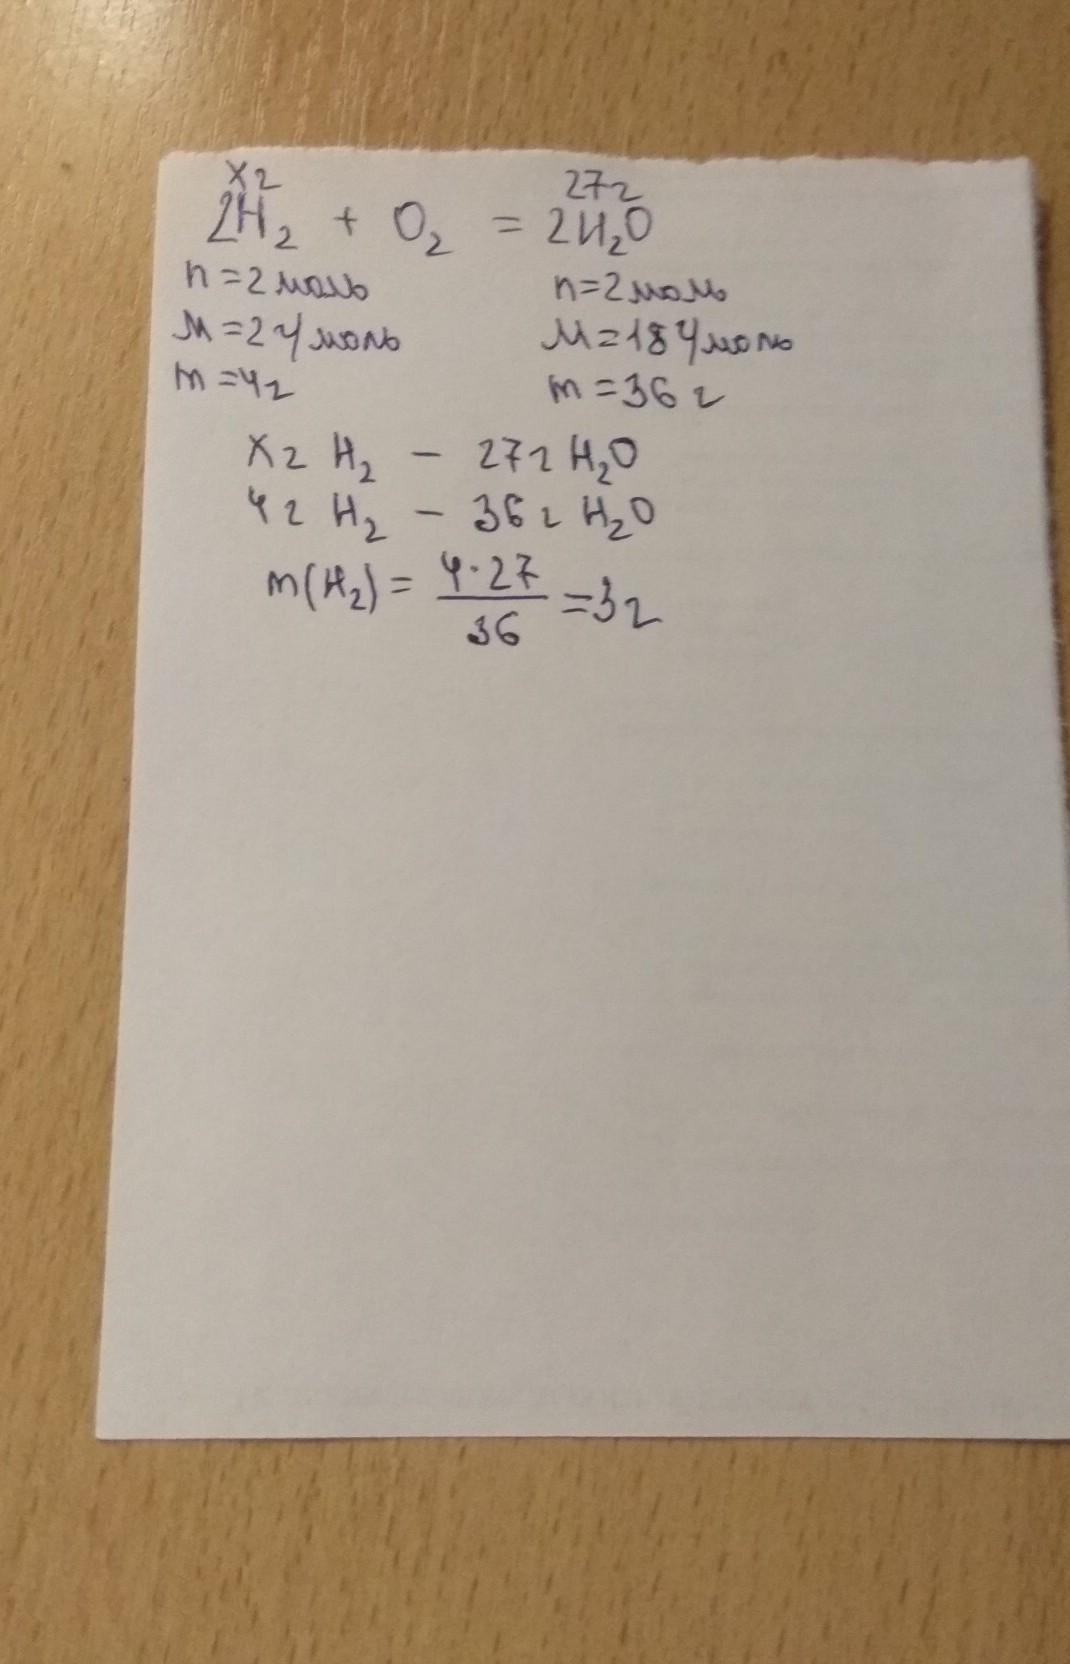 xг 27г
2H₂ + O₂ = 2H₂O
n=2моль n=2моль
M=2г/моль M=18г/моль
m=4г m=36г
xг H₂ – 27г H₂O
4г H₂ – 36г H₂O
m(H₂) = 4·27/36 =3г